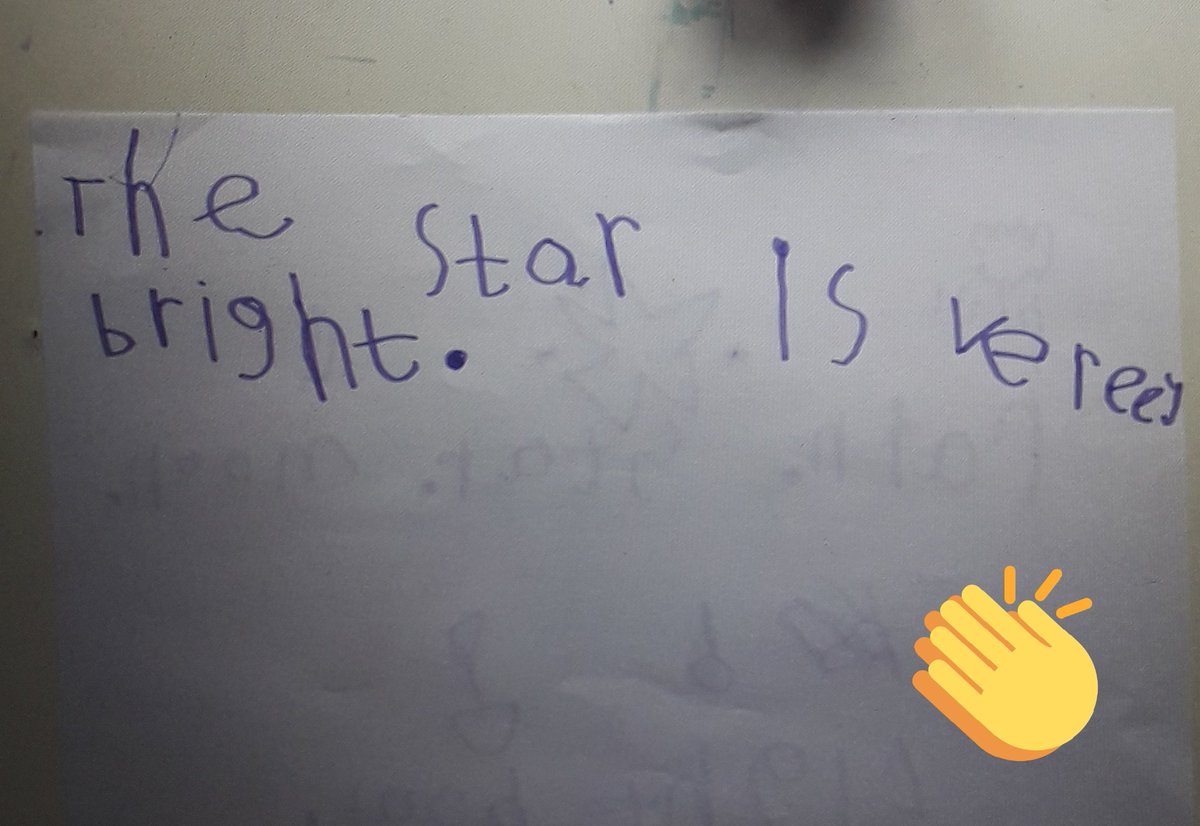 The star Is vereey
bright.